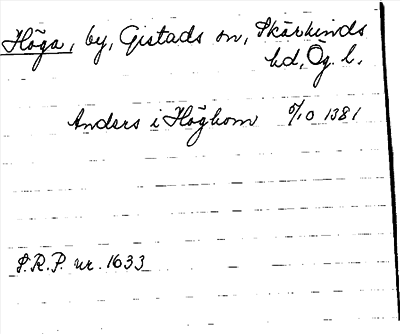 Höga, by, Gistads sn, Skärkinds
hd, Ög. l.
Anders i Höghom 6/10 1381
S.R.P. nr. 1633